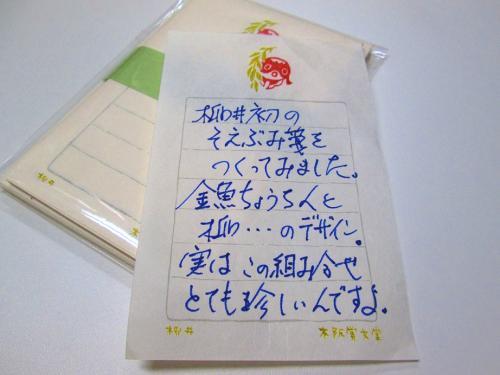 柳井初の
そえぶみ箋を
つくってみました。
金魚ちょうちんと
柳…のデザイン。
実はこの組み合せ
とても珍しいんですよ。
柳井
木阪賞文堂
柳井
木